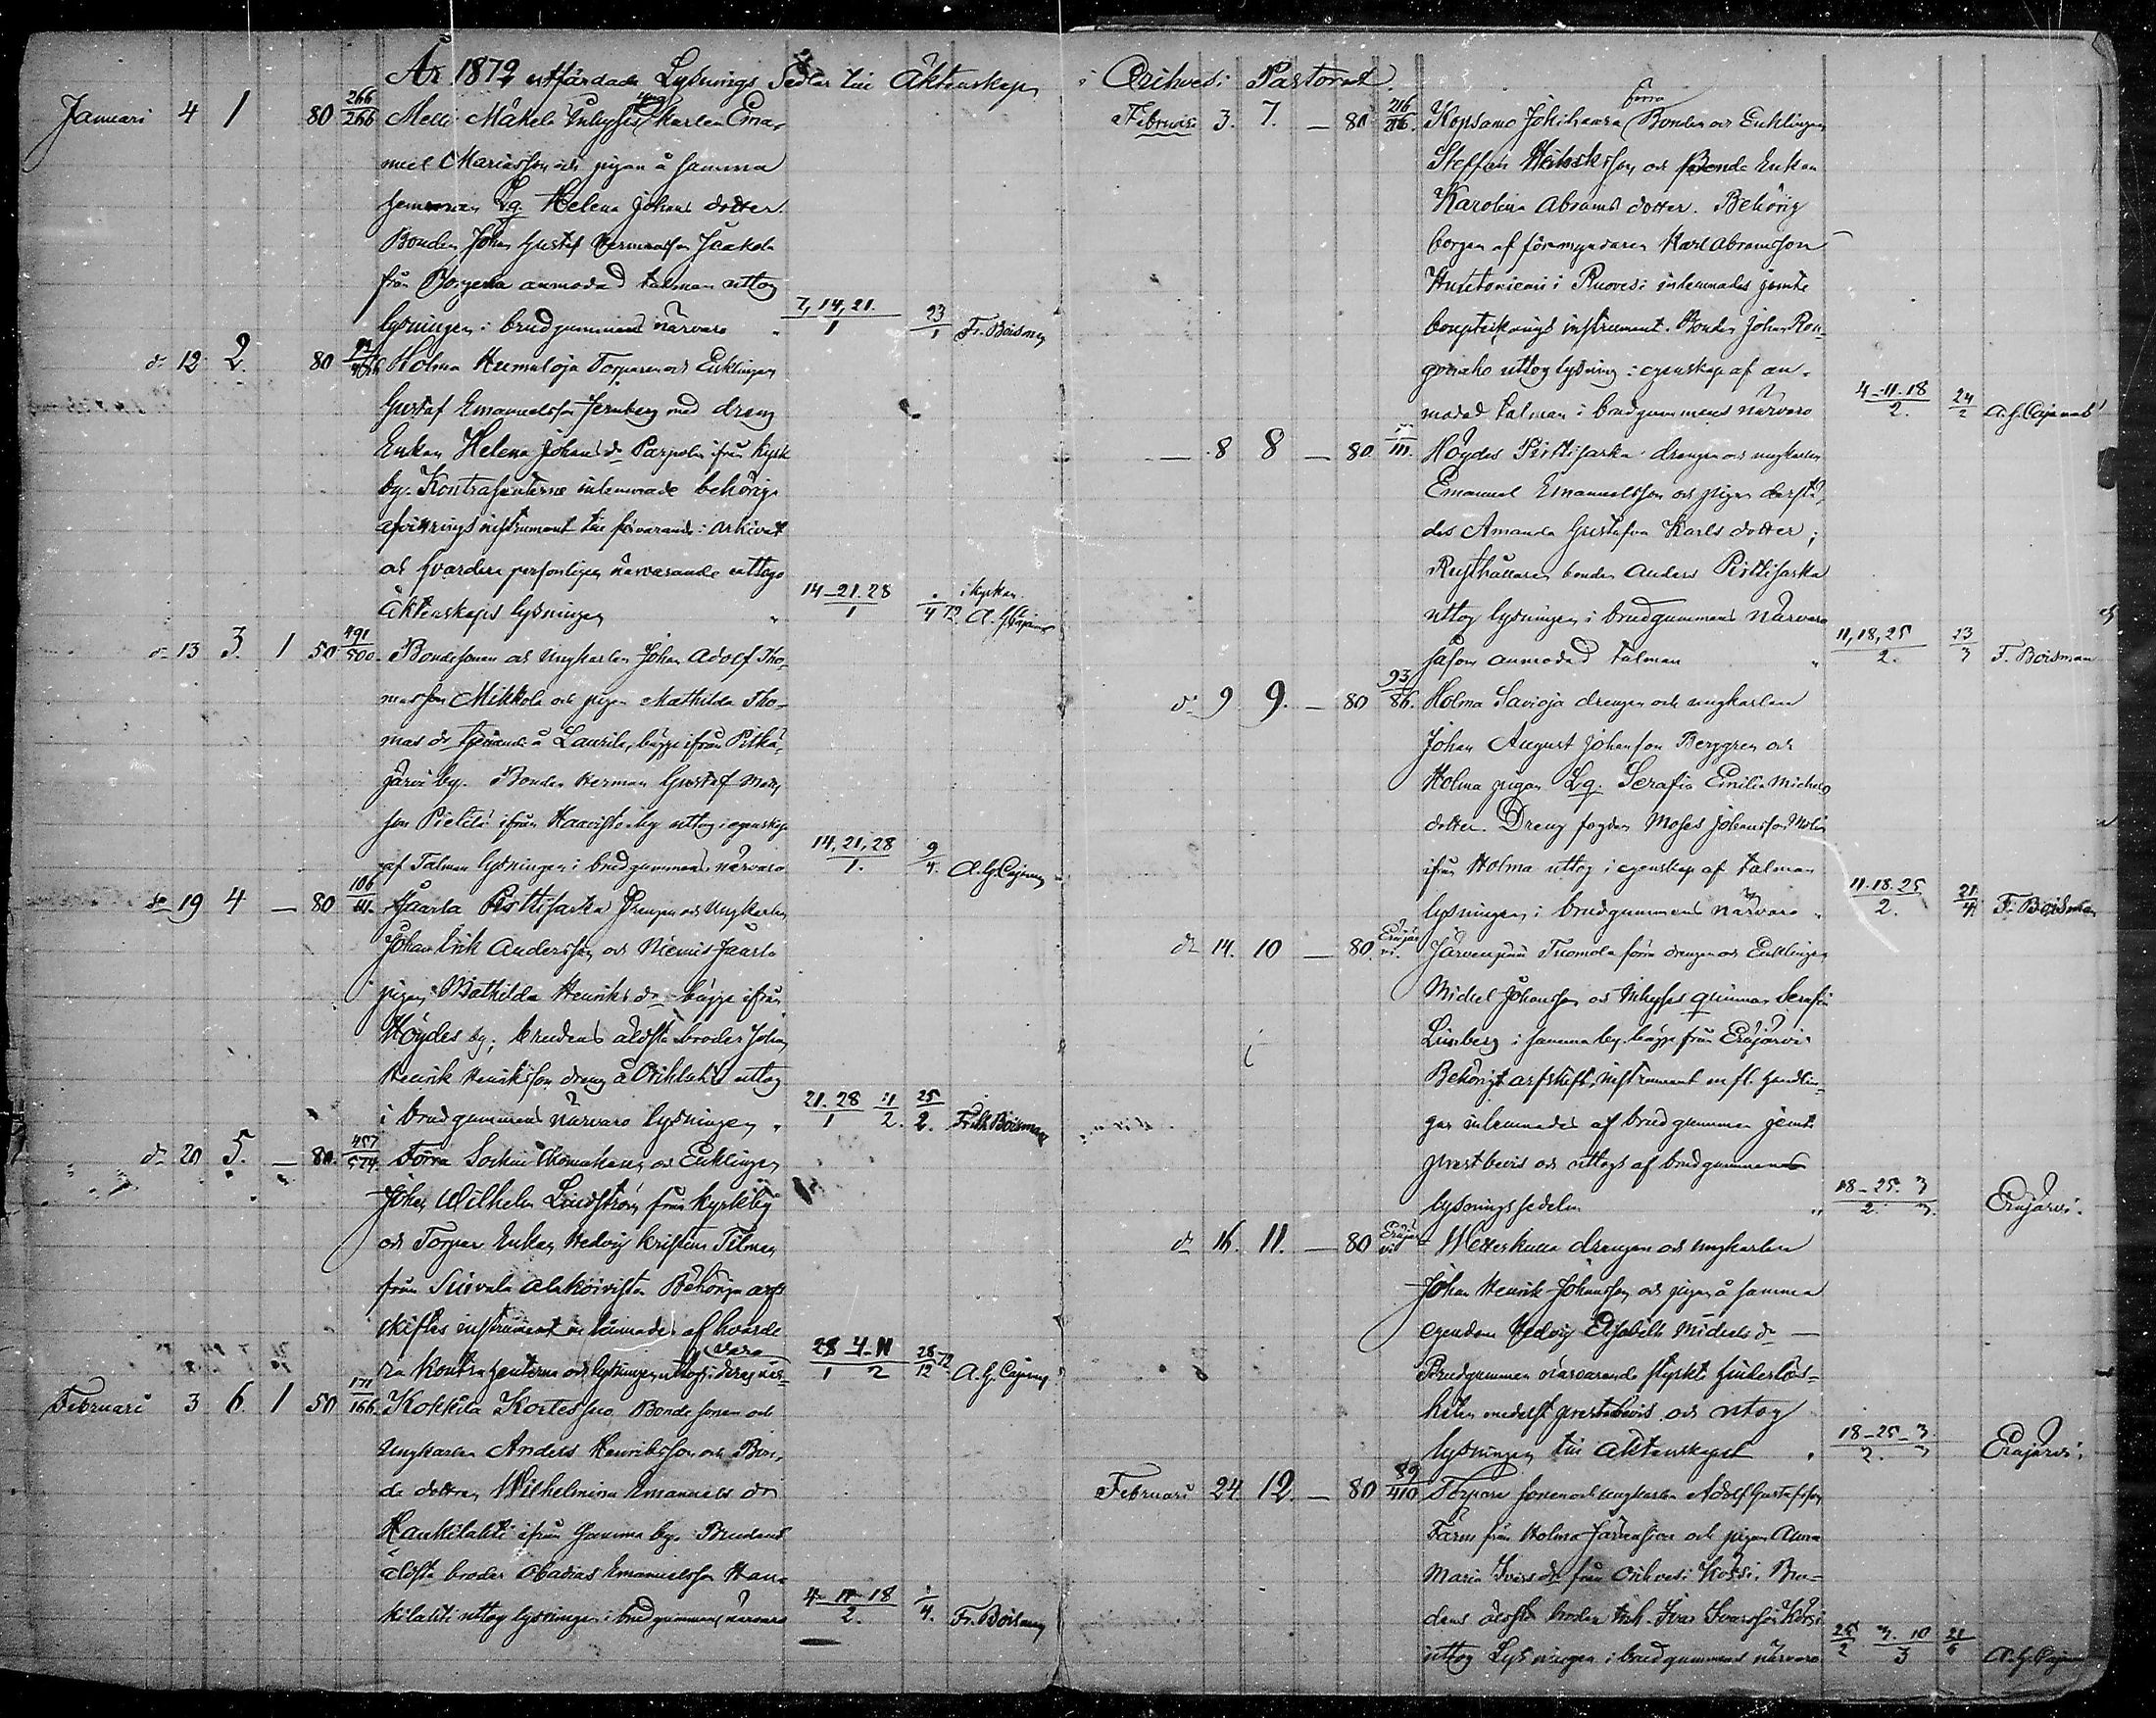 År 1872 utfärdade Lysnings Sedlar till Äktenskap i Orihvesi Pastorat.
Januari 4 1 80 266/266 Melli Mäkelä Inhyses karlen Ema-
nuel Mariasson och pigan å samma
hemman Lg. Helena Johans dotter.
Bonden Johan Gustaf Hermansson Jaakola
från anmodad talman uttog
lysningen i brudgummens närvaro " 7, 14, 21./1 23/1 Fr. Boisman
do 12 2. 80 Holma Humaloja Torparen och Enklingen
Gustaf Emanuelsson Jernberg med dreng
Enkan Helena Johans dr Parpola ifrån Kyrk
by. Kontrahenterne inlemnade behöriga
afvittrings instrument till förvarande i Arkivet
och hvardera personligen närvarande uttogo
äktenskaps lysningen " 14-21.28/1 4 72 i kyrkan. A. G. Cajanus
do 13 3. 1 50 491/500 Bondesonen och Ungkarlen Johan Adolf Tho-
masson Mikkola och pigan Mathilda Tho-
mas dr tjenande å Laurila, bägge ifrån Pitkä-
järvi by. Bonden Herman Gustaf Mat
son Pietilä ifrån Haavisto by uttog i egenskap
af Talman lysningen i brudgummens närvaro 14, 21, 28/1. 9/4. A. G. Cajanus
do 19 4 — 80 106/111. Haarla Pirttisarka Drengen och Ungkarlen
Johan Erik Andersson och Niemis Haarla
pigan Mathilda Henriks dr bägge ifrån
Höydes by; brudens äldsta broder Johan
Henrik Henriksson dreng å Orihlahti uttog
i brudgummens närvaro lysningen " 21. 28/1 11/2. 25/2. Fr. Boisman
do 20 5. — 80. 457/574. Förra Socken och Enklingen
Johan Wilhelm Lindström från Kyrkby
och Torpar Enkan Hedvig Kristina Tilman
från Siivola Alakoivisto. Behöriga arf
skiftes instrument inlämnades af hvarde
ra Kontrahenterna och lysningen uttogs i deras när-
varo 28/1 4-11/2 28/12 72 A. G. Cajanus
Februari 3 6. 1 50 171/166. Kokkila Kortessuo Bonde sonen och
Ungkarlen Anders Henriksson och Bon-
de dottren Wilhelmina Emanuels dr
Haukilahti ifrån samma by. Brudens
äldsta broder Obadias Emanuelsson Hau-
kilahti uttog lysningen i brudgummens närvaro 4-11-18/2. 1/4. Fr. Boisman
Februari 3. 7. — 80 216/216. Kopsamo Johikaara förra Bonden och Enklingen
Steffan Henriksson och Bonde Enkan
Karolina Abrams dotter. Behörig
borgen af förmyndaren Karl Abramsson
i Ruovesi inlemnades jemte
bouptecknings instrument. Bonden Johan Rön-
gonaho uttog lysning i egenskap af an-
modad talman i brudgummens närvaro 4-11.18/2. 24/2 A. G. Cajanus
— 8 8 — 80 111. Höydes Pirttisarka drengen och ungkarlen
Emanuel Emanuelsson och pigan derstä-
des Amanda Gustafva Karls dotter;
Rusthållaren bonden Anders Pirttisarka
uttog lysningen i brudgummens närvaro
såsom anmodad talman " 11, 18, 25/2. 23/3 F. Boisman
do 9 9. — 80 93/86. Holma Savioja drengen och ungkarlen
Johan August Johansson Berggren och
Holma pigan Lg. Serafia Emilia Michels
dotter. Dreng fogden Moses Johansson Molin
ifrån Holma uttog i egenskap af talman
lysningen i brudgummens närvaro " 11. 18. 25/2. 21/4 F. Boisman
do 14. 10 — 80 Eräjärvi. Järvenpää Tuomola förra drengen och Enklingen
Michel Johansson och Inhyses qvinnan Serafia
Linberg i samma by. bägge från Eräjärvi
Behörigt arfskifts instrument m fl. handlin-
gar inlemnades af brudgummen jemte
prestbevis och uttogs af brudgummen
lysningssedeln " 18-25./2. 3/3. Eräjärvi.
do 16. 11. — 80 Eräjärvi Wetterkulla drengen och ungkarlen
Johan Henrik Johansson och pigan å samma
egendom Hedvig Elisabeth Michels dr —
Brudgummen närvarande styrkte hinderlös-
heten medelst prestbevis och uttog
lysningen till Äktenskapet " 18-25/2. 3/3 Eräjärvi.
Februari 24. 12. — 80 89/410 Torpare sonen och ungkarlen Adolf Gustafsson
Färm från Holma Järvensivu och pigan Anna
Maria Ivars dr från Orihvesi Kossi. Bru-
dens äldste broder Inh. Ivar Ivarsson Kossi
uttog Lysningen i brudgummens närvaro 25/2 3. 10/3 21/6 A. G. Cajanus